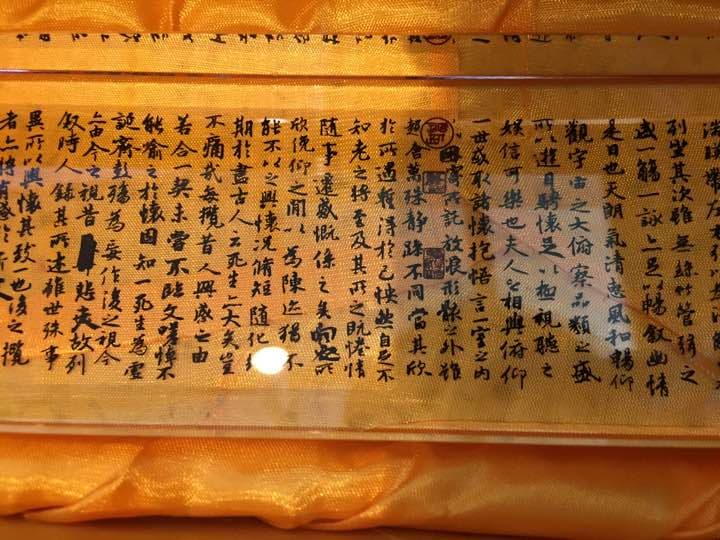 列坐其次雖無絲竹管弦之
盛一觴一詠亦足以暢敘幽情
是日也天朗氣清惠風和暢仰
觀宇宙之大俯察品類之盛
所以遊目騁懷足以極視聽之
娛信可樂也夫人之相與俯仰
一世或取諸懷抱悟言一室之內
因寄所託放浪形骸之外雖
趣舍萬殊靜躁不同當其欣
於所遇暫得於己快然自足不
知老之將至及其所之既惓情
隨事遷感慨係之矣向之所
欣俛仰之間以為陳迹猶不
能不以之興懷況脩短隨化終
期於盡古人云死生亦大矣豈
不痛哉每攬昔人興感之由
若合一契未嘗不臨文嗟悼不
能喻之於懷固知一死生為虛
誕齊彭殤為妄作後之視今
亦由今之視昔悲夫故列
敘時人錄其所述雖世殊事
異所以興懷其致一也後之攬
者亦將有感於斯